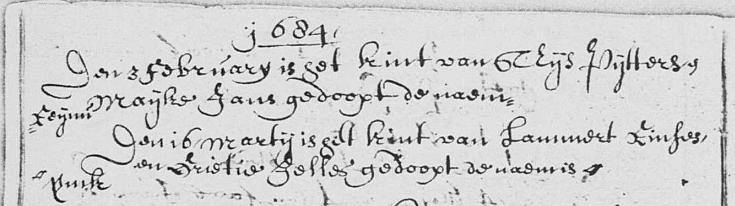 1684
Den 3 february is het kint van Thijs Pytters
Mayke Jans gedoopt de naem
Reyni
Den 16 martij is het kint van Lammert Rinses
en Grietie Jelles gedoopt de naem is